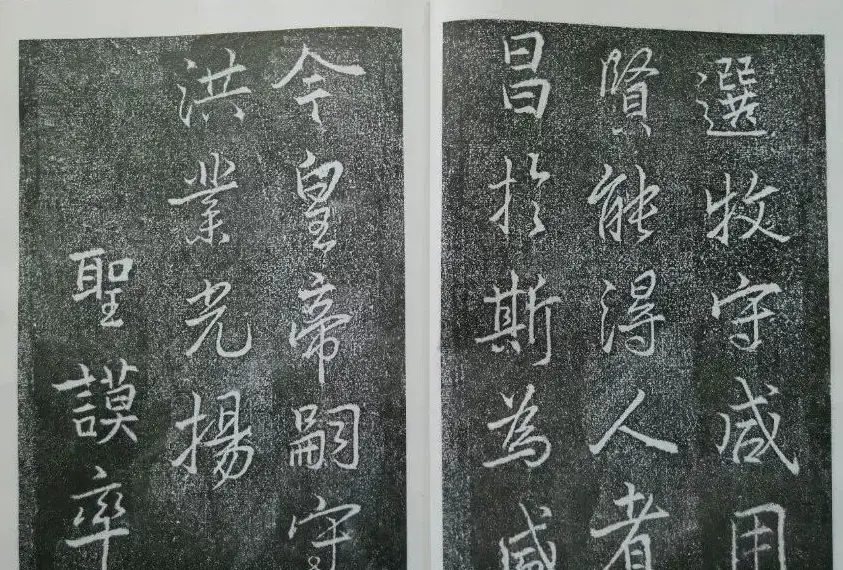 選牧守咸用
賢能得人者
昌於斯為盛
今皇帝嗣守
洪業光揚
聖謨率